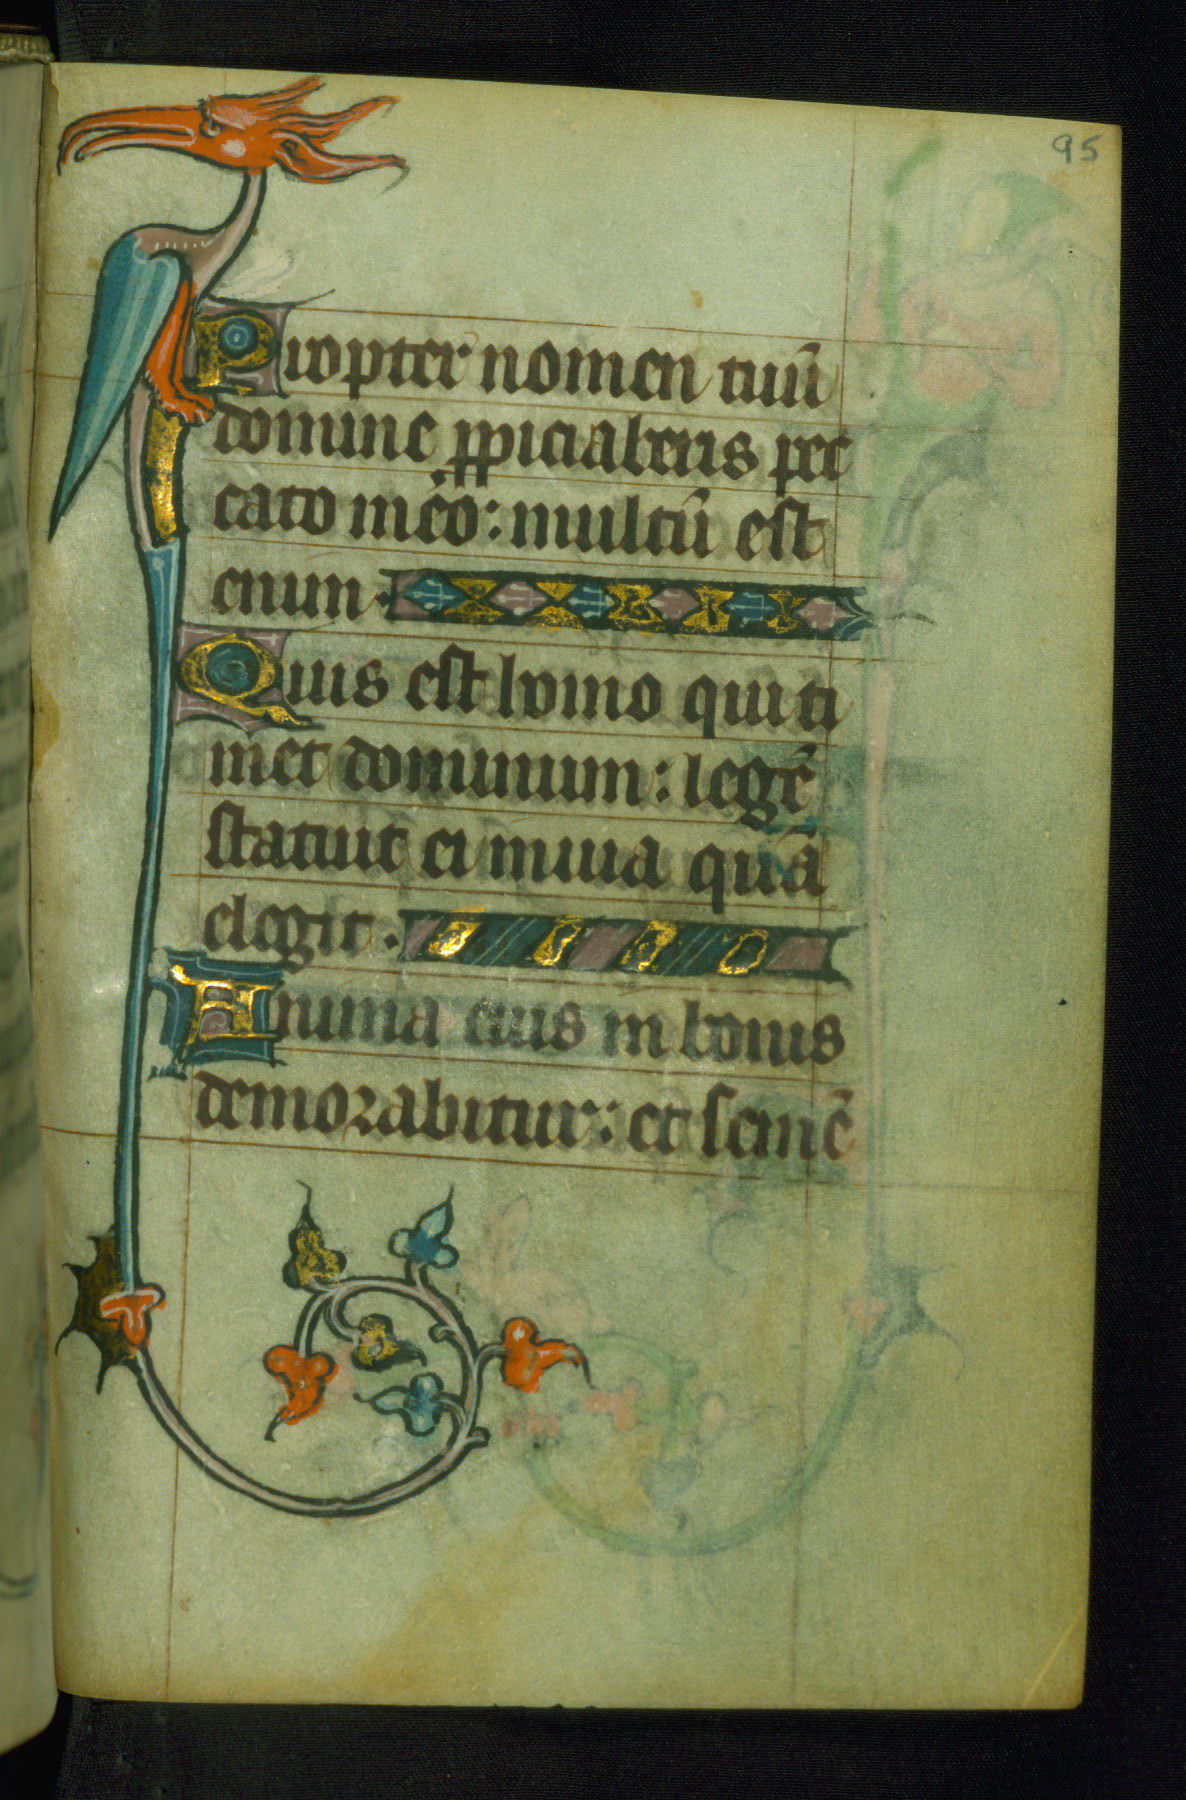 95
Propter nomen tuū
domine ꝓpiciaberis pec
cato meo: multū est
enim.
Quis est homo qui ti
met dominum: legē
statuit ei in uia quā
elegit.
Anima eius in bonis
demorabitur: et semē